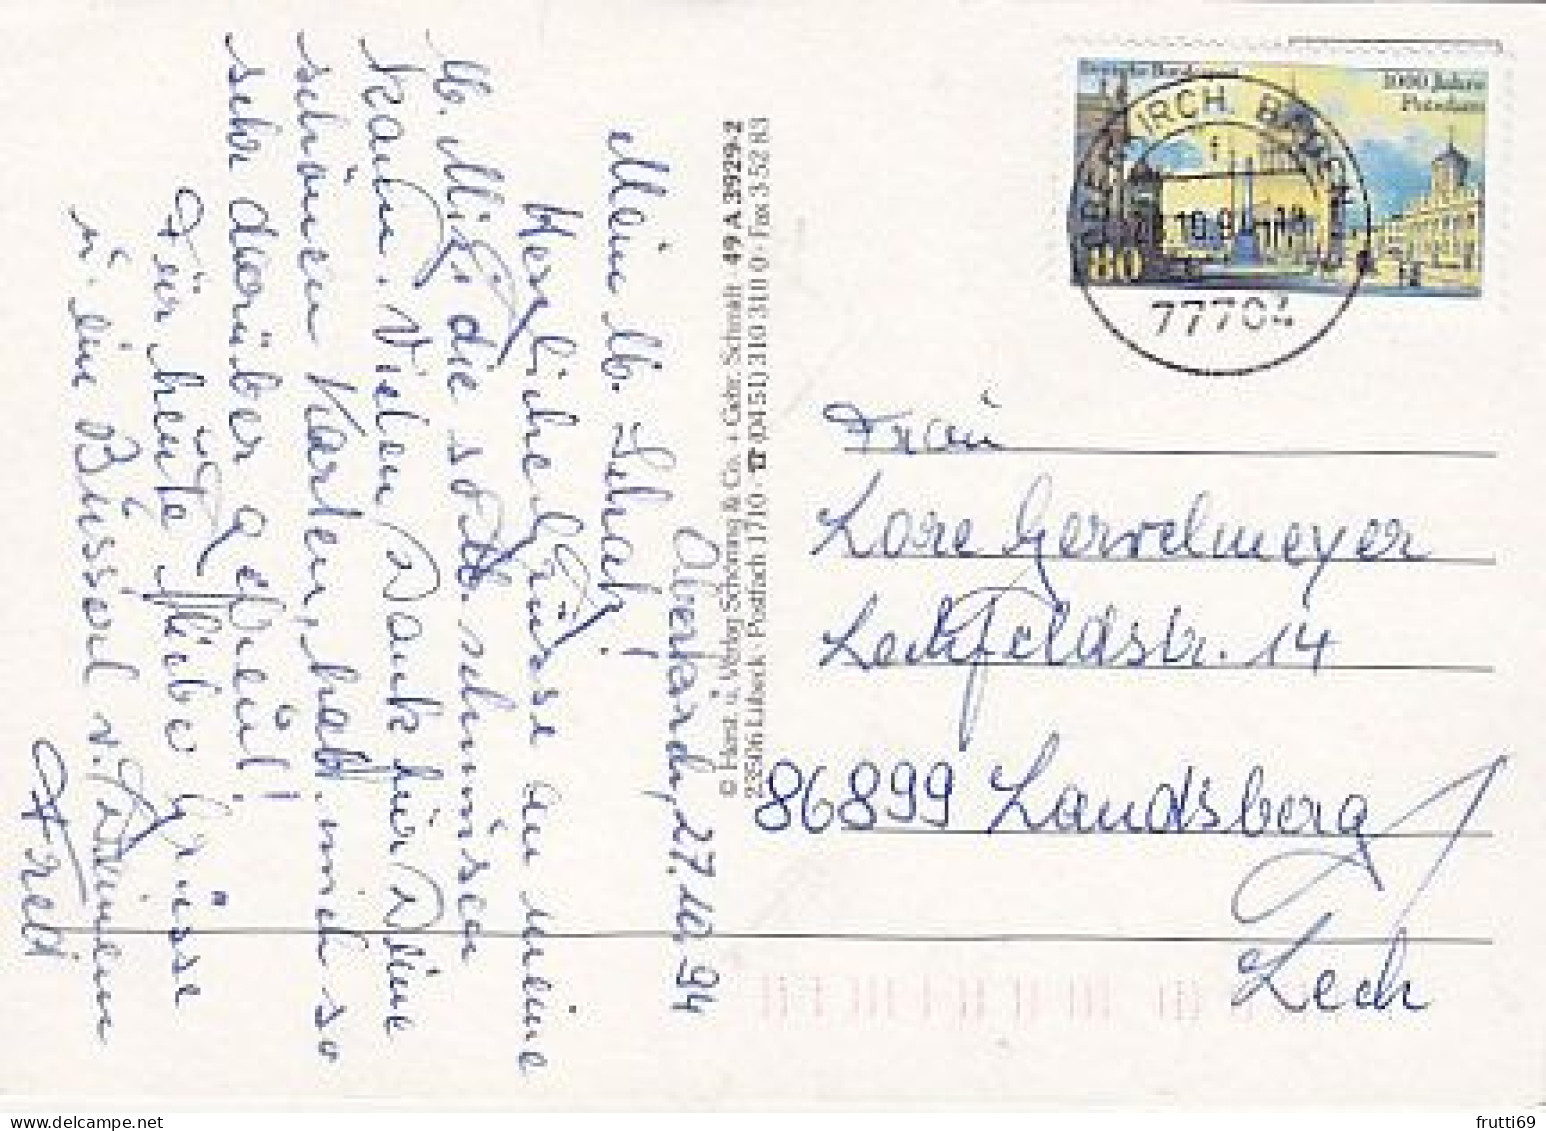 Oberkirch, 27.10.94
Mein lb. Schatz!
Herzliche Grüsse an meine
lb. Mi die so lb. schmusen
kann. Vielen Dank für Deine
schönen Karten, hab mich so
sehr darüber gefreut!
Für heute liebe Grüsse
u. ein Büssel v. Deinem
© Horst. u. Verlag Schöning & Co. + Gebr. Schmidt · 49 A 3929-2
23506 Lübeck · Postfach 1710 · ☎ (0451) 310 310 0 · Fax 3 52 83
Deutsche Bundespost
1000 Jahre
Potsdam
80
OBERKIRCH, BADEN
f
10.94-18
77704
Frau
Lore Gervelmeyer
Lechfeldstr. 14
86899 Landsberg
Lech
frutti69